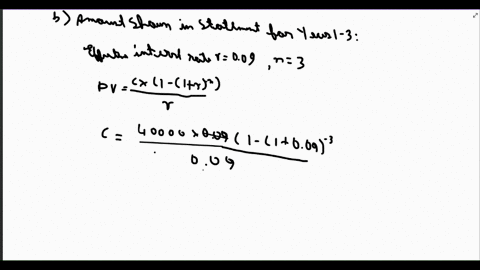 b) Amount Shown in Statement for Years 1-3:
Effective interest rate r = 0.09 , n = 3
PV = C x (1 - (1+r)^n)
r
C = 40000 x 0.09 (1 - (1 + 0.09)^-3
0.09